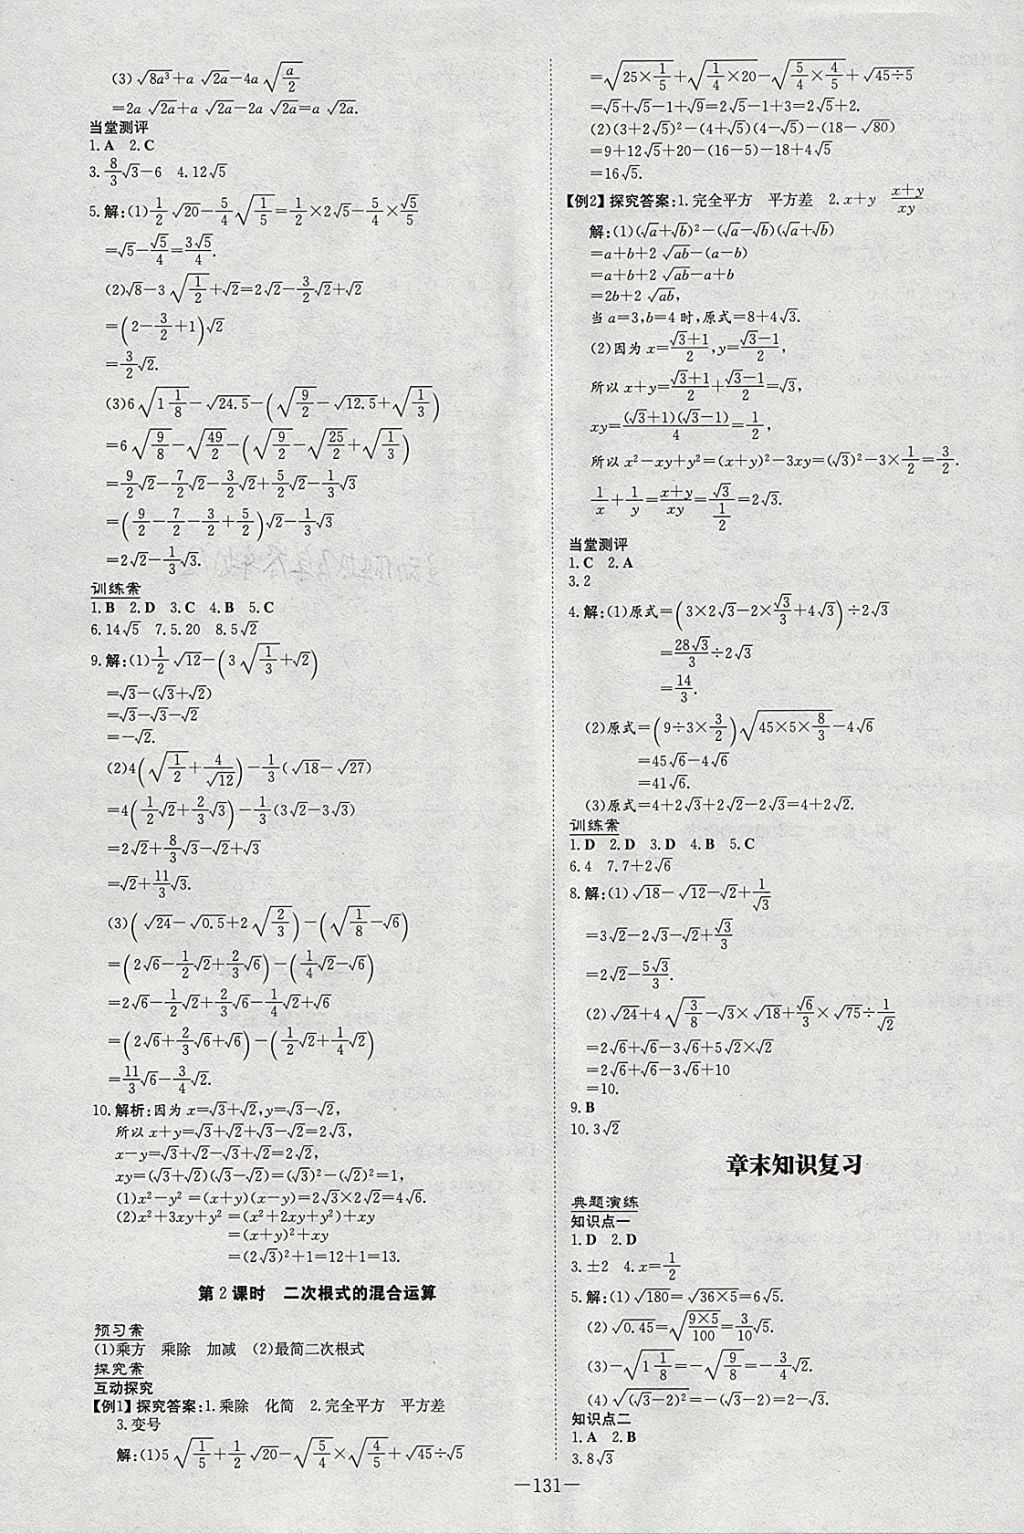 (3)√(8a³)+a√(2a)-4a√(a/2)
=2a√(2a)+a√(2a)-2a√(2a)=a√(2a).
当堂测评
1.A 2.C
3.8/3√3-6 4.12√5
5.解:(1)1/2√20-5/4√(1/5)=1/2×2√5-5/4×√5/5
=√5-√5/4=3√5/4.
(2)√8-3√(1/2)+√2=2√2-3/2√2+√2
=(2-3/2+1)√2
=3/2√2.
(3)6√(1 1/8)-√24.5-(√(9/2)-√12.5+√(1/3))
=6√(9/8)-√(49/2)-(√(9/2)-√(25/2)+√(1/3))
=9/2√2-7/2√2-3/2√2+5/2√2-1/3√3
=(9/2-7/2-3/2+5/2)√2-1/3√3
=2√2-1/3√3.
训练案
1.B 2.D 3.C 4.B 5.C
6.14√5 7.5.20 8.5√2
9.解:(1)1/2√12-(3√(1/3)+√2)
=√3-(√3+√2)
=√3-√3-√2
=-√2.
(2)4(√(1/2)+4/√12)-1/3(√18-√27)
=4(1/2√2+2/3√3)-1/3(3√2-3√3)
=2√2+8/3√3-√2+√3
=√2+11/3√3.
(3)(√24-√0.5+2√(2/3))-(√(1/8)-√6)
=(2√6-1/2√2+2/3√6)-(1/4√2-√6)
=2√6-1/2√2+2/3√6-1/4√2+√6
=(2√6+2/3√6+√6)-(1/2√2+1/4√2)
=11/3√6-3/4√2.
10.解析:因为x=√3+√2,y=√3-√2,
所以x+y=√3+√2+√3-√2=2√3,
x-y=√3+√2-√3+√2=2√2,
xy=(√3+√2)(√3-√2)=(√3)²-(√2)²=1,
(1)x²-y²=(x+y)(x-y)=2√3×2√2=4√6.
(2)x²+3xy+y²=(x²+2xy+y²)+xy
=(x+y)²+xy
=(2√3)²+1=12+1=13.
第2课时 二次根式的混合运算
预习案
(1)乘方 乘除 加减 (2)最简二次根式
探究案
互动探究
【例1】探究答案:1.乘除 化简 2.完全平方 平方差
3.变号
解:(1)5√(1/5)+1/2√20-√(5/4)×√(4/5)+√45÷√5
=√(25×1/5)+√(1/4×20)-√(5/4×4/5)+√(45÷5)
=√5+√5-1+√9=2√5-1+3=2√5+2.
(2)(3+2√5)²-(4+√5)(4-√5)-(18-√80)
=9+12√5+20-(16-5)-18+4√5
=16√5.
【例2】探究答案:1.完全平方 平方差 2.x+y (x+y)/xy
解:(1)(√a+√b)²-(√a-√b)(√a+√b)
=a+b+2√(ab)-(a-b)
=a+b+2√(ab)-a+b
=2b+2√(ab),
当a=3,b=4时,原式=8+4√3.
(2)因为x=(√3+1)/2,y=(√3-1)/2,
所以x+y=(√3+1)/2+(√3-1)/2=√3,
xy=(√3+1)(√3-1)/4=1/2,
所以x²-xy+y²=(x+y)²-3xy=(√3)²-3×1/2=3/2.
1/x+1/y=(x+y)/xy=√3/(1/2)=2√3.
当堂测评
1.C 2.A
3.2
4.解:(1)原式=(3×2√3-2×√3/3+4√3)÷2√3
=28√3/3÷2√3
=14/3.
(2)原式=(9÷3×3/2)√(45×5×8/3)-4√6
=45√6-4√6
=41√6.
(3)原式=4+2√3+2√2-2√3=4+2√2.
训练案
1.D 2.D 3.D 4.B 5.C
6.4 7.7+2√6
8.解:(1)√18-√12-√2+1/√3
=3√2-2√3-√2+√3/3
=2√2-5√3/3.
(2)√24+4√(3/8)-√3×√18+√6/3×√75÷1/√2
=2√6+√6-3√6+5√2×√2
=2√6+√6-3√6+10
=10.
9.B
10.3√2
章末知识复习
典题演练
知识点一
1.D 2.D
3.±2 4.x=1/2
5.解:(1)√180=√(36×5)=6√5.
(2)√0.45=√(9×5/100)=3/10√5.
(3)-√(1 1/8)=-√(9/8)=-3/4√2.
(4)√((√3-2)²)=-(√3-2)=2-√3.
知识点二
1.A 2.B
3.8√3
—131—